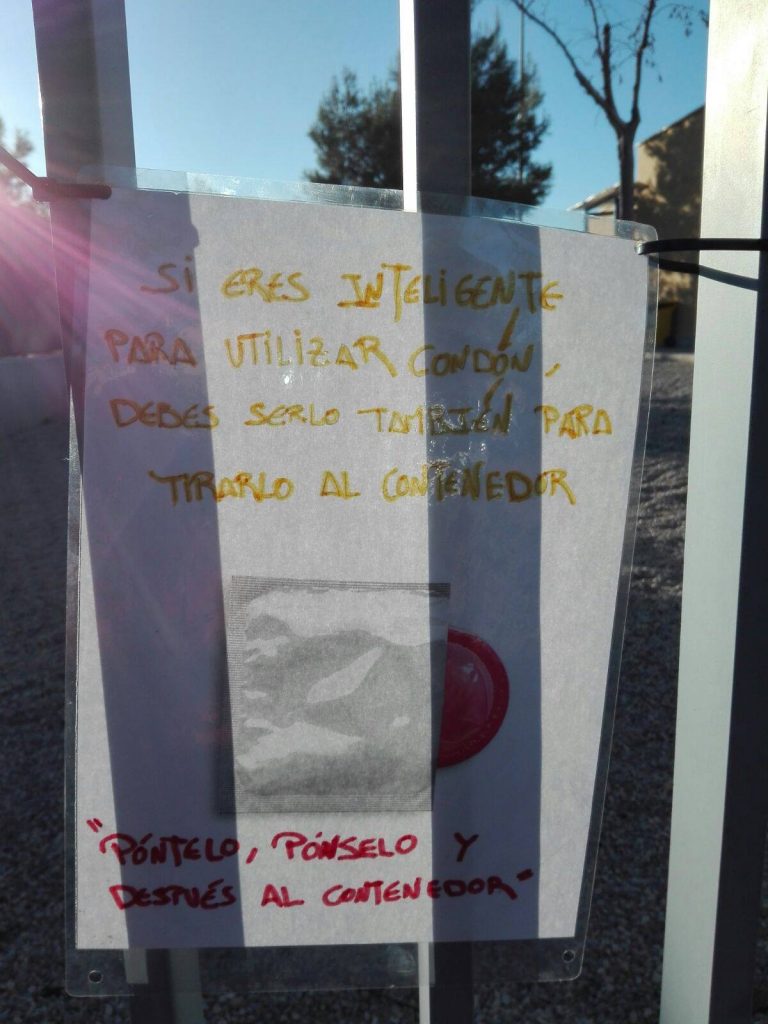 SI ERES INTELIGENTE
PARA UTILIZAR CONDÓN,
DEBES SERLO TAMBIÉN PARA
TIRARLO AL CONTENEDOR
"PÓNTELO, PÓNSELO Y
DESPUÉS AL CONTENEDOR"